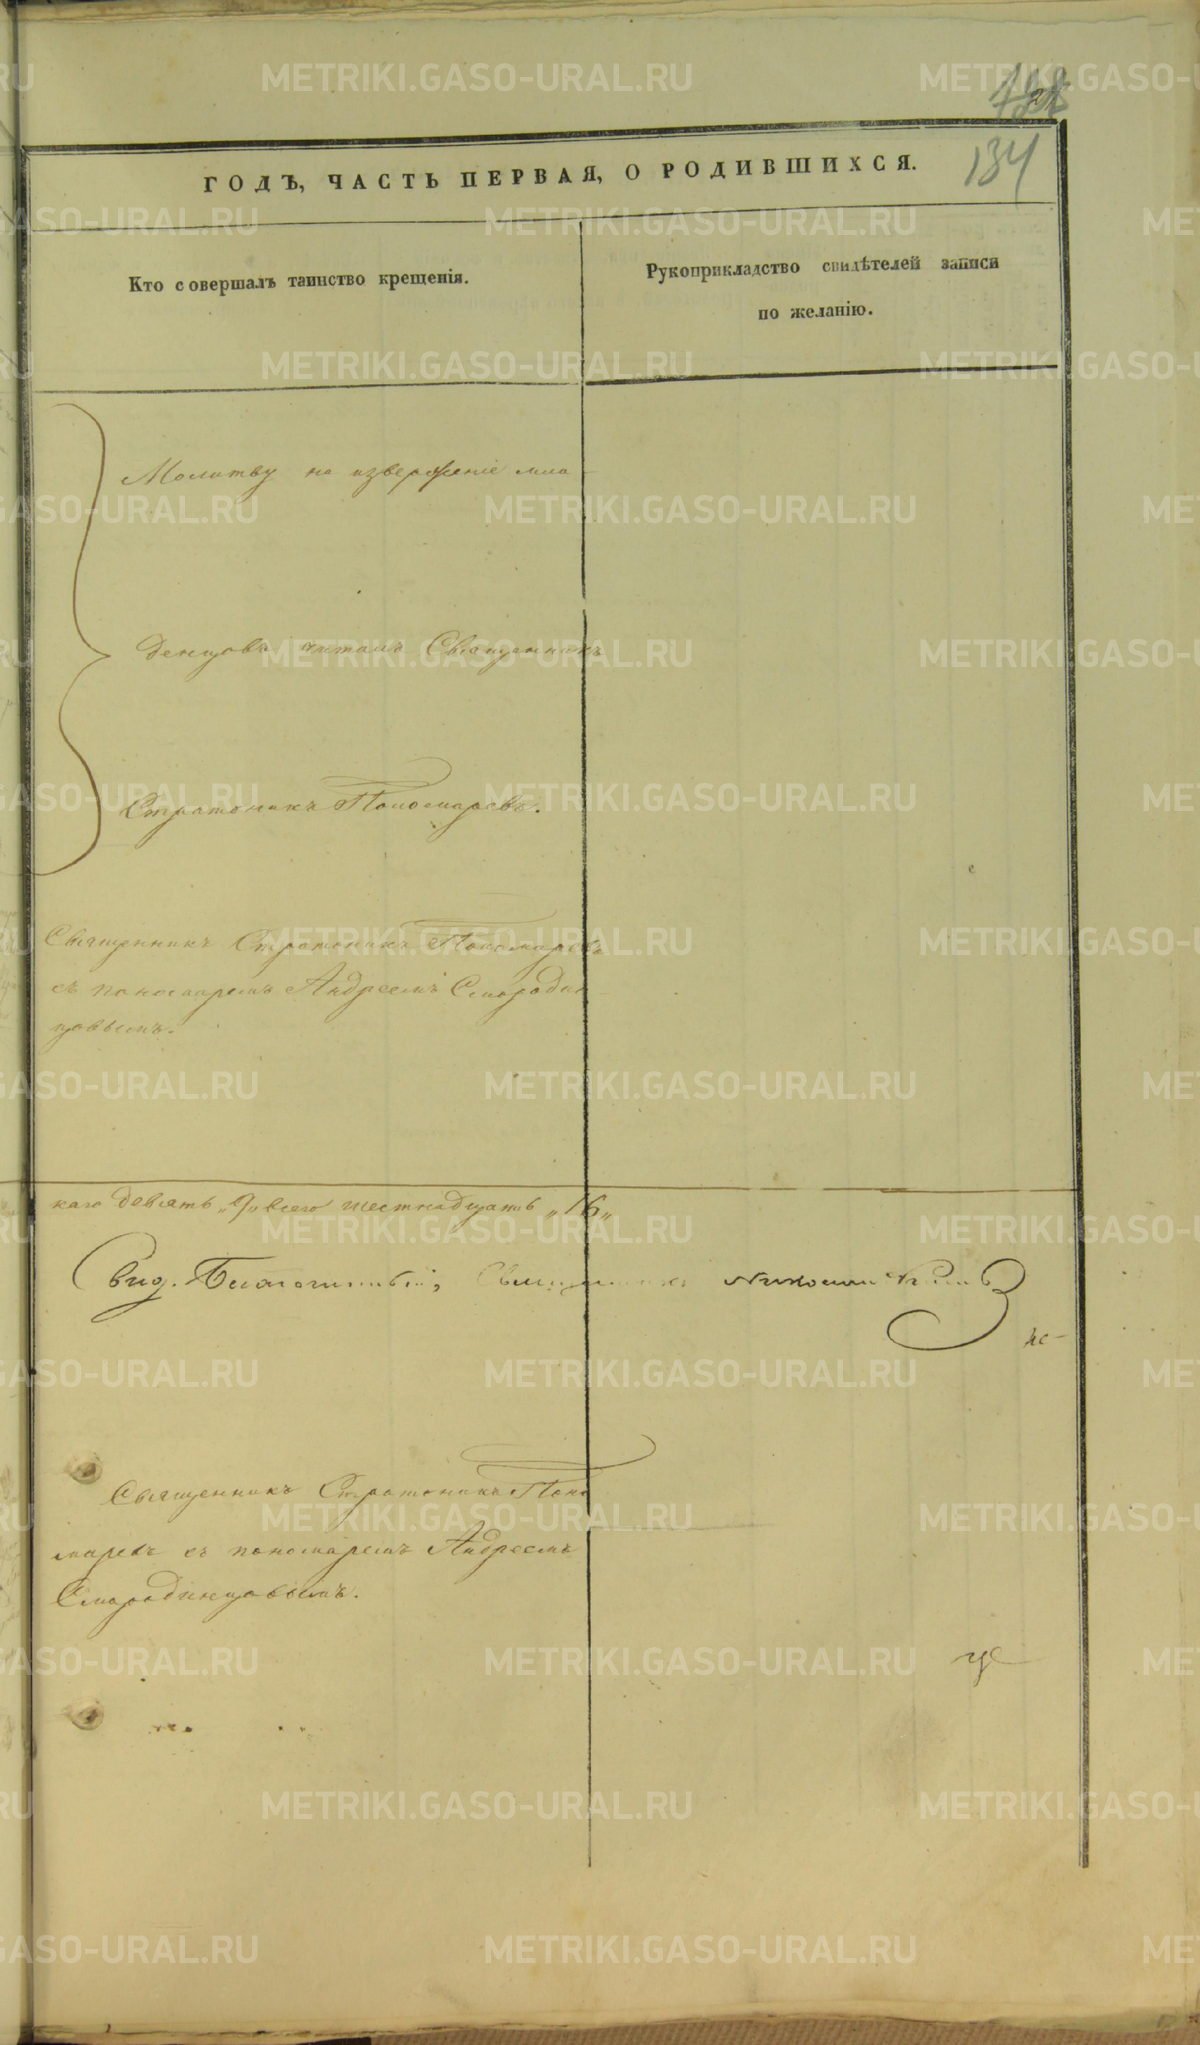 134
ГОДЪ, ЧАСТЬ ПЕРВАЯ, О РОДИВШИХСЯ.
Кто совершалъ таинство крещенія.
Рукоприкладство свидѣтелей записи
по желанію.
Молитву на изверженіе мла
денцовъ читалъ Священникъ
Стратоникъ Пономаревъ.
Священникъ Стратоникъ Пономаревъ
съ пономаремъ Андреемъ Смородин
цовымъ.
каго девять „9„ всего шестнадцать „16„
Свид. Благочинный, Священникъ Николай
Священникъ Стратоникъ Поно
маревъ съ пономаремъ Андреемъ
Смородинцовымъ.
METRIKI.GASO-URAL.RU